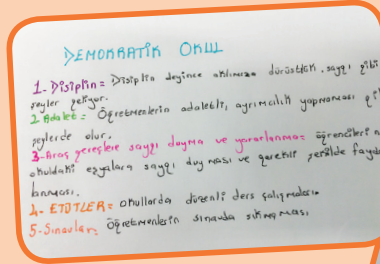 DEMOKRATİK OKUL
1- Disiplin = Disiplin deyince aklımıza dürüstlük, saygı gibi
şeyler geliyor.
2. Adalet = Öğretmenlerin adaletli, ayrımcılık yapmaması
şeylerde olur.
3- Araç gereçlere saygı duyma ve yararlanma = öğrencileri
okuldaki eşyalara saygı duyması ve gerekli şekilde
lanması.
4- ETÜTLER = Okullarda düzenli ders çalışması.
5- Sınavlar = Öğretmenlerin sınavda sıkmaması.